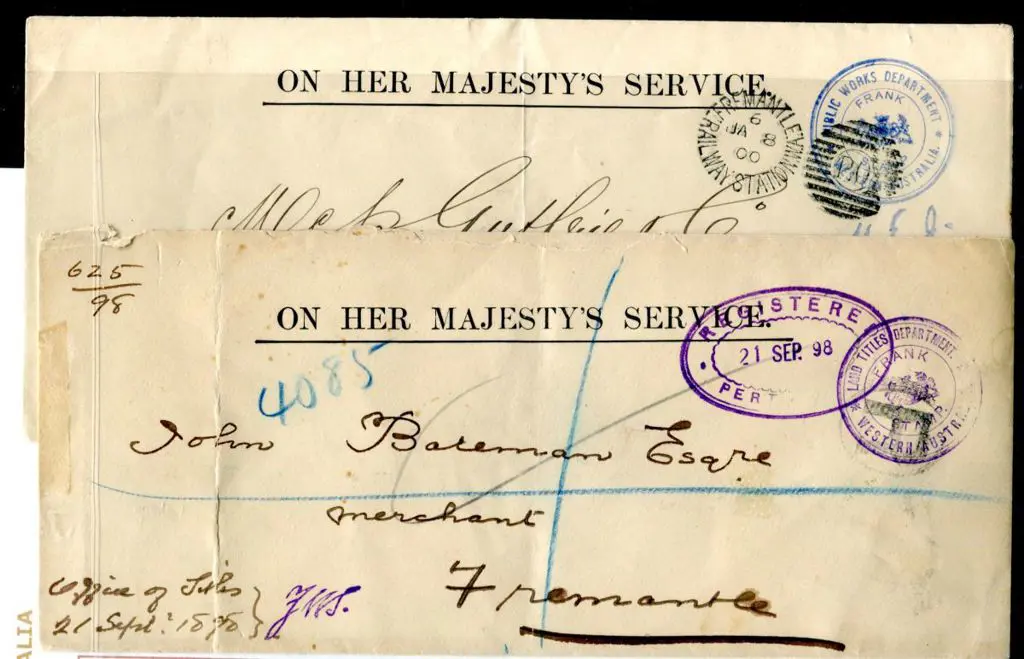 ON HER MAJESTY'S SERVICE.
PUBLIC WORKS DEPARTMENT
FRANK
AUSTRALIA.
FREMANTLE RAILWAY STATION W.A.
6
JA 8
00
Guthrie & Co
625
98
ON HER MAJESTY'S SERVICE.
REGISTERE
21 SEP. 98
PERT
LAND TITLES DEPARTMENT.
FRANK
STAMP
WESTERN AUSTR
4085
John Bateman Esqre
merchant
Fremantle
Office of Titles
21 Sept. 1898
ALIA